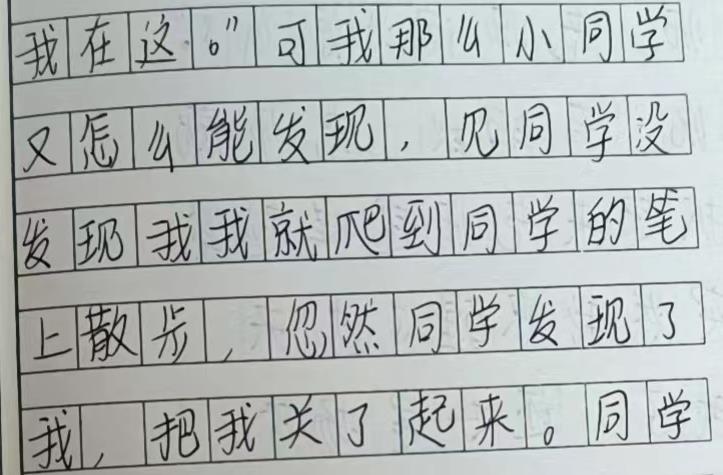 我在这。”可我那么小同学
又怎么能发现，见同学没
发现我我就爬到同学的笔
上散步，忽然同学发现了
我，把我关了起来。同学